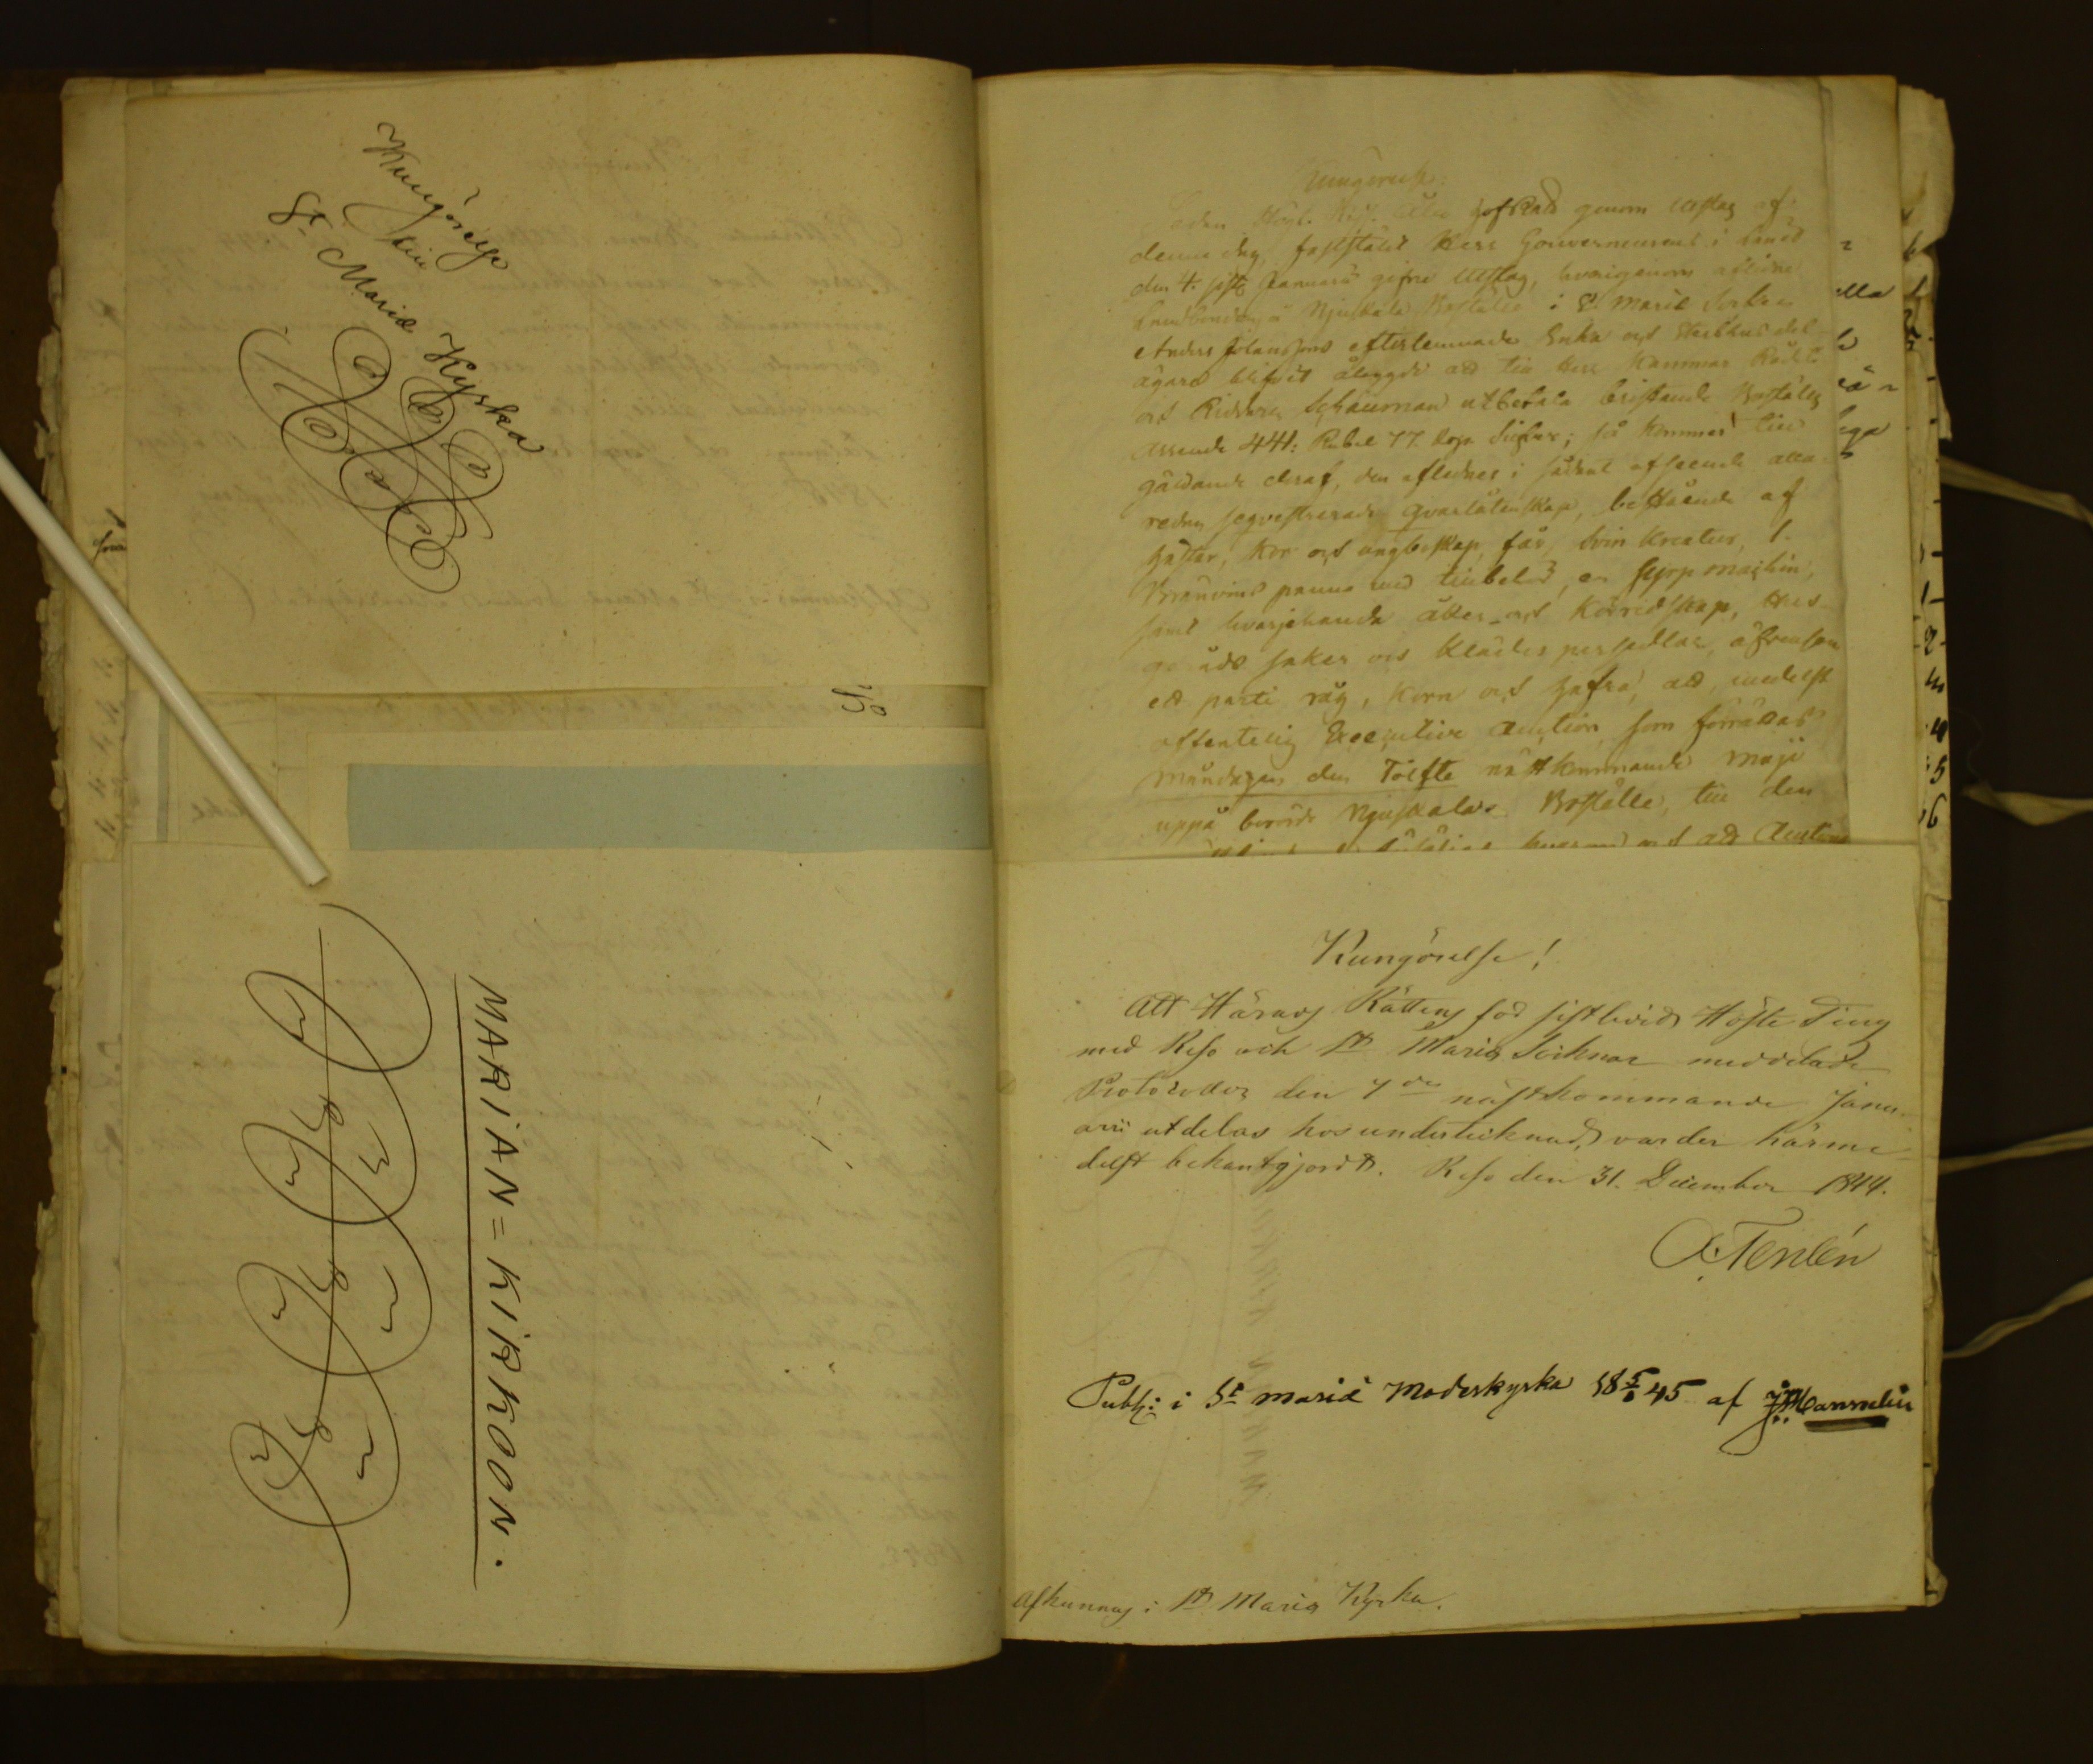 Kungörelse
till
St Mariæ Kyrka
MARiAN=KIRKOON.
Kungörelse.
Sedan Högl. Kejs. Åbo HofRätt genom Utslag af
denna dag, fastställt Herr Gouverneurens i Länet
den 4. siste Januarii gifne Utslag, hvarigenom aflidne
Landbonden å Njuskala Boställe i St Mariæ Socken
Anders Johanssons efterlemnade Enka och Sterbhus del-
ägare blifvit ålagde att till Herr Kammar Rådet
och Riddaren Schauman utbetala bristande Boställs
Arrende 441: Rubel 77. Kop. Silfver; så kommer till
gäldande deraf, den aflednes i sådant afseende alla-
redan seqvestrerade qvarlåtenskap, bestående af
hästar, kor och ungboskap, får, svin kreatur, 1.
Bränvins panna med tillbehör, en
samt hvarjehanda åker- och Körredskap, Hus-
geråds saker och Klädes persedlar, äfvensom
ett parti råg, korn och hafra, att medelst
offentelig Executive Auction, som förrättas
måndagen den Tolfte nästkommande Maji
uppå berörde Njuskala Boställe, till den
och att Auctions
Kungörelse!
Att Härads Rättens för sistledit Höste Ting
med Reso och St Mariæ Socknar meddelade
Protocoller den 7de nästkommande Janu-
arii utdelas hos undertecknad, varder härme-
delst bekantgjordt. Reso den 31. December 1844.
Publ: i St Mariæ Moderkyrka 18 5/1 45 af
Afkunnas i St Mariæ Kyrka.